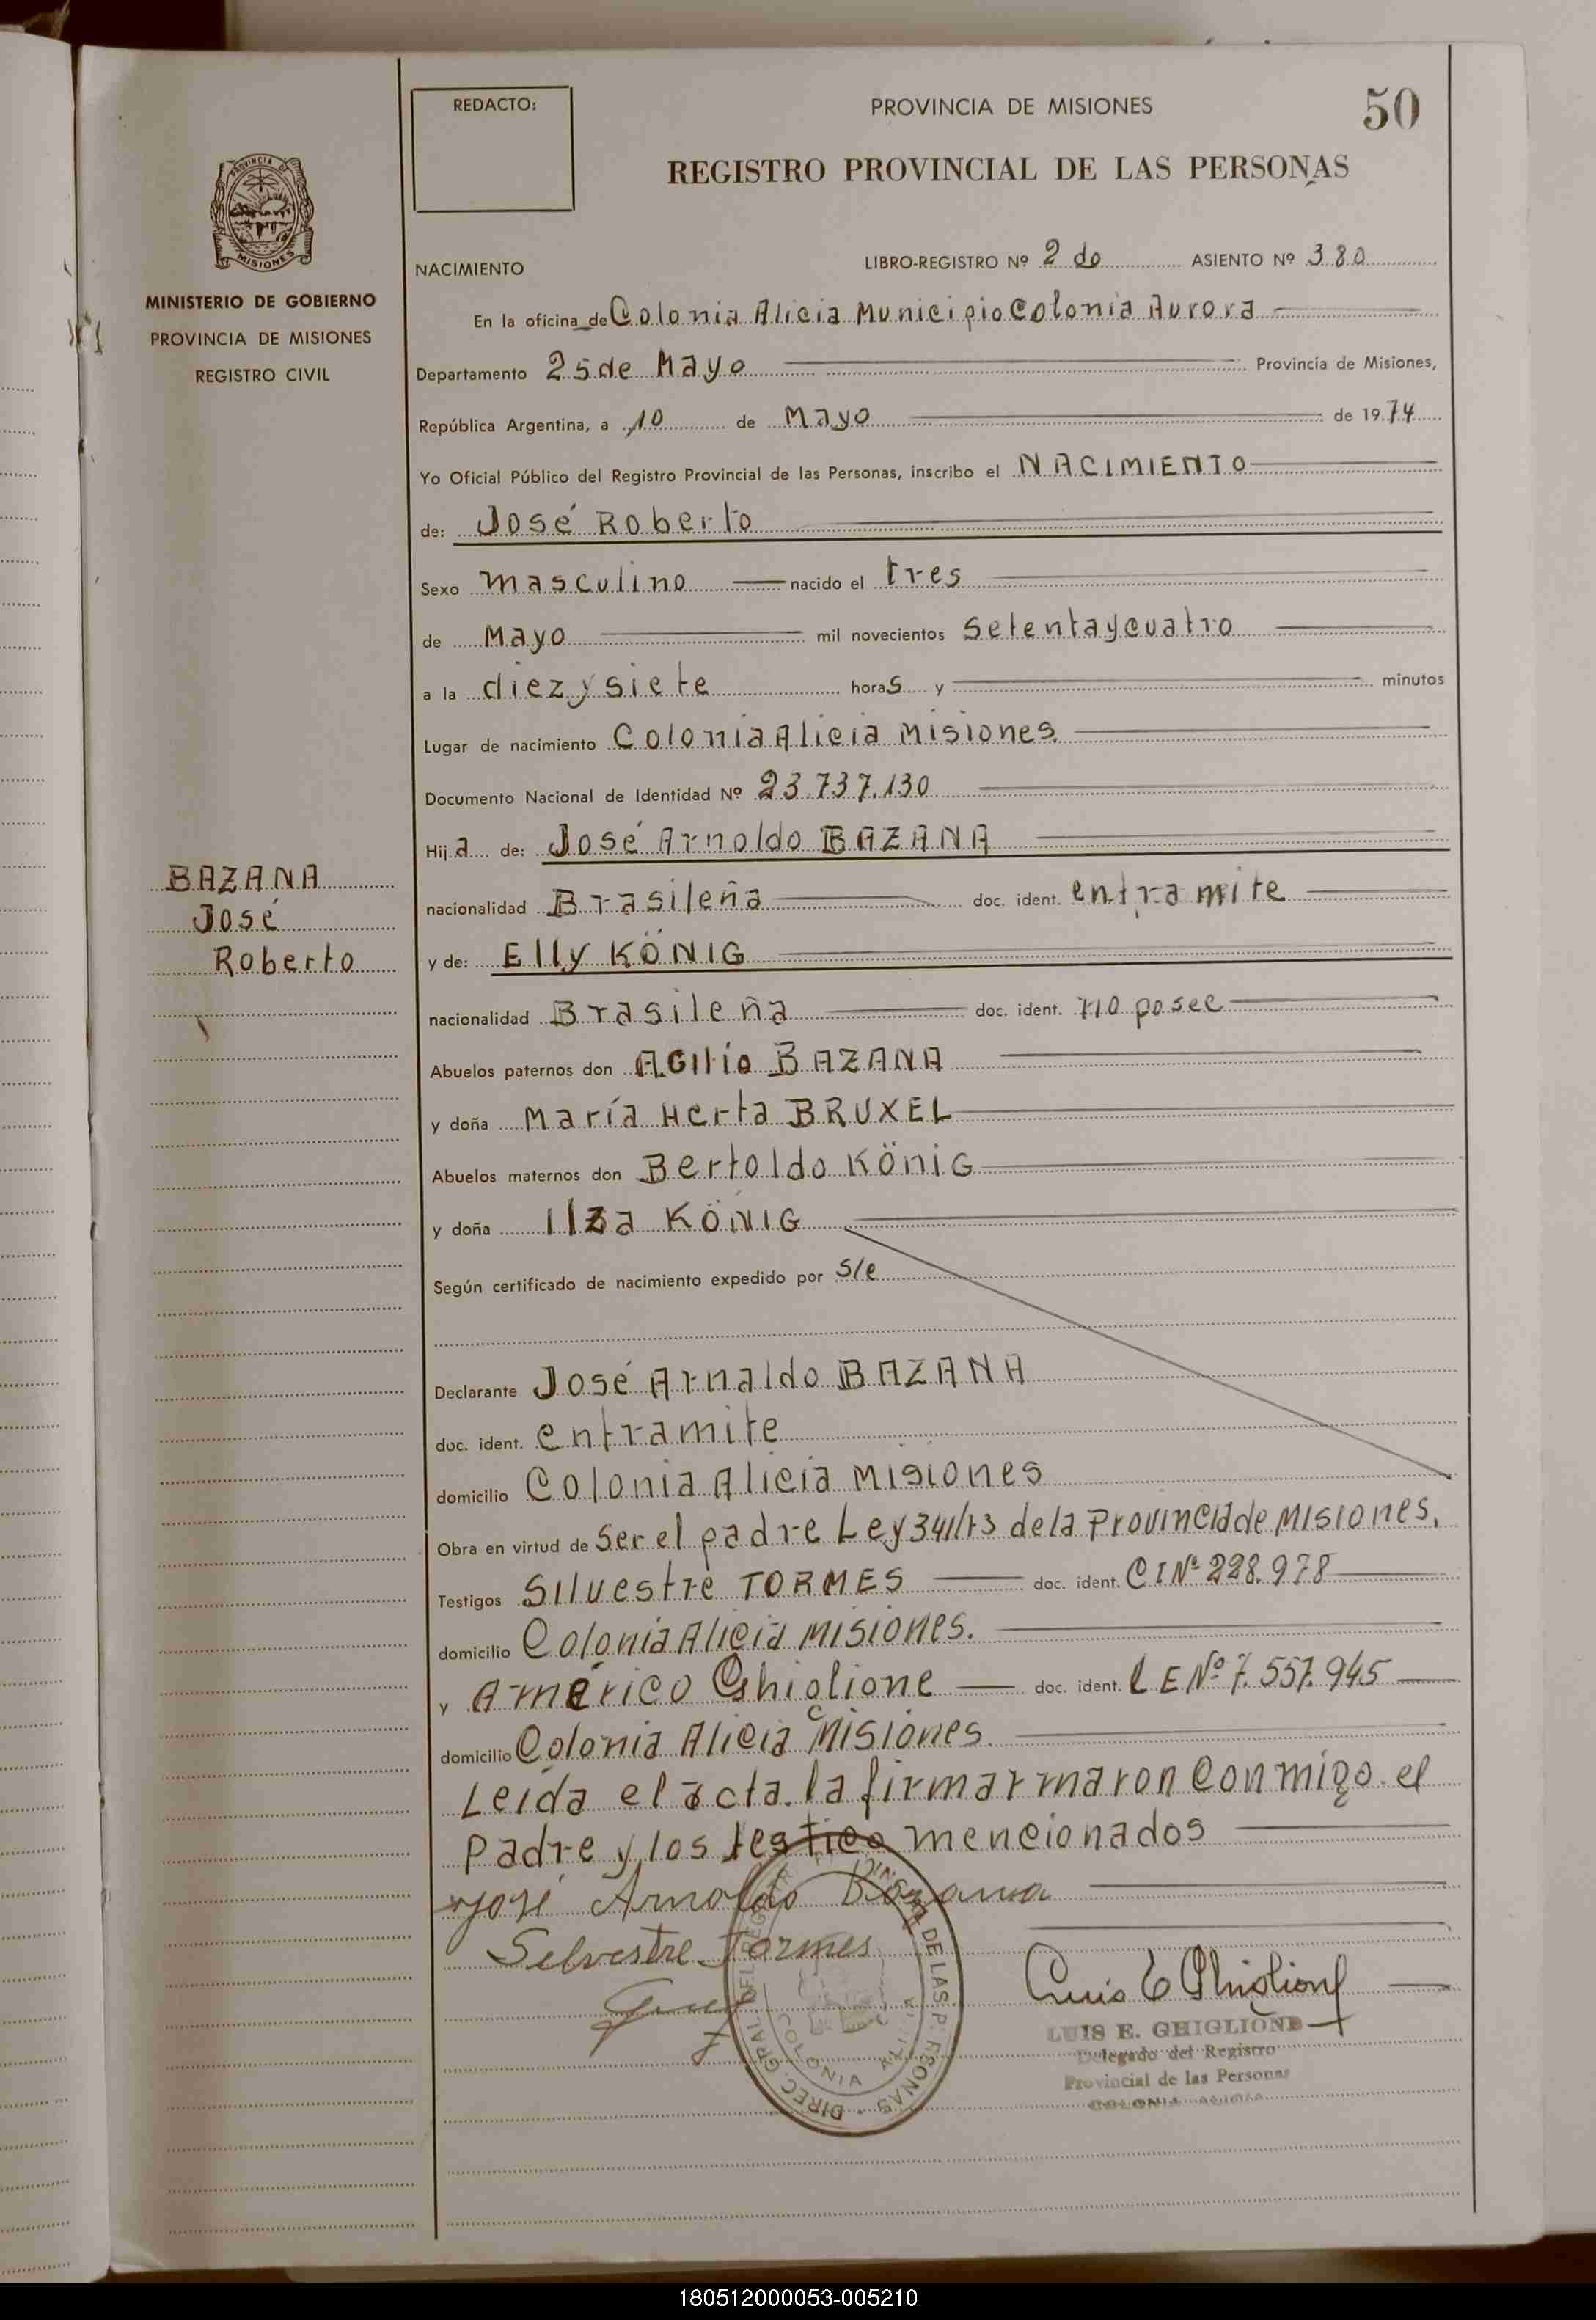 REDACTO:
PROVINCIA DE MISIONES
50
REGISTRO PROVINCIAL DE LAS PERSONAS
PROVINCIA DE
MISIONES
MINISTERIO DE GOBIERNO
PROVINCIA DE MISIONES
REGISTRO CIVIL
NACIMIENTO
LIBRO-REGISTRO Nº 2 do ASIENTO Nº 380
En la oficina de Colonia Alicia Municipio Colonia Aurora
Departamento 25 de Mayo Provincia de Misiones,
República Argentina, a 10 de Mayo de 1974
Yo Oficial Público del Registro Provincial de las Personas, inscribo el NACIMIENTO
de: José Roberto
Sexo masculino nacido el tres
de Mayo mil novecientos setentaycuatro
a la diezysiete horas y minutos
Lugar de nacimiento Colonia Alicia Misiones
Documento Nacional de Identidad Nº 23.737.130
Hija de: José Arnoldo BAZANA
BAZANA
José
Roberto
nacionalidad Brasileña doc. ident. entramite
y de: Elly KÖNIG
nacionalidad Brasileña doc. ident. no posee
Abuelos paternos don AGIlio BAZANA
y doña María Herta BRUXEL
Abuelos maternos don Bertoldo KöniG
y doña Ilza KÖNIG
Según certificado de nacimiento expedido por S/e
Declarante José Arnaldo BAZANA
doc. ident. entramite
domicilio Colonia Alicia Misiones
Obra en virtud de ser el padre Ley 341/73 de la Provincia de Misiones.
Testigos Silvestre TORMES doc. ident. C I Nº 228.978
domicilio Colonia Alicia Misiones.
y Américo Ghiglione doc. ident. L E Nº 7.557.945
domicilio Colonia Alicia Misiones
Leída el acta. la firmarmaron conmigo. el
Padre y los testigo mencionados
José Arnoldo Bazana
Selvestre Tormes
Luis E Ghiglione
LUIS E. GHIGLIONE
Delegado del Registro
Provincial de las Personas
COLONIA ALICIA
DIREC. GRAL. DEL REG. DE LAS PERSONAS
COLONIA ALICIA
180512000053-005210